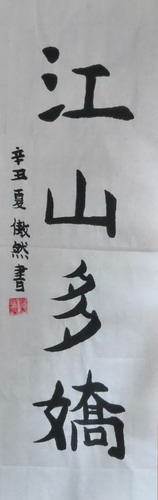 江山多嬌
辛丑夏傲然書